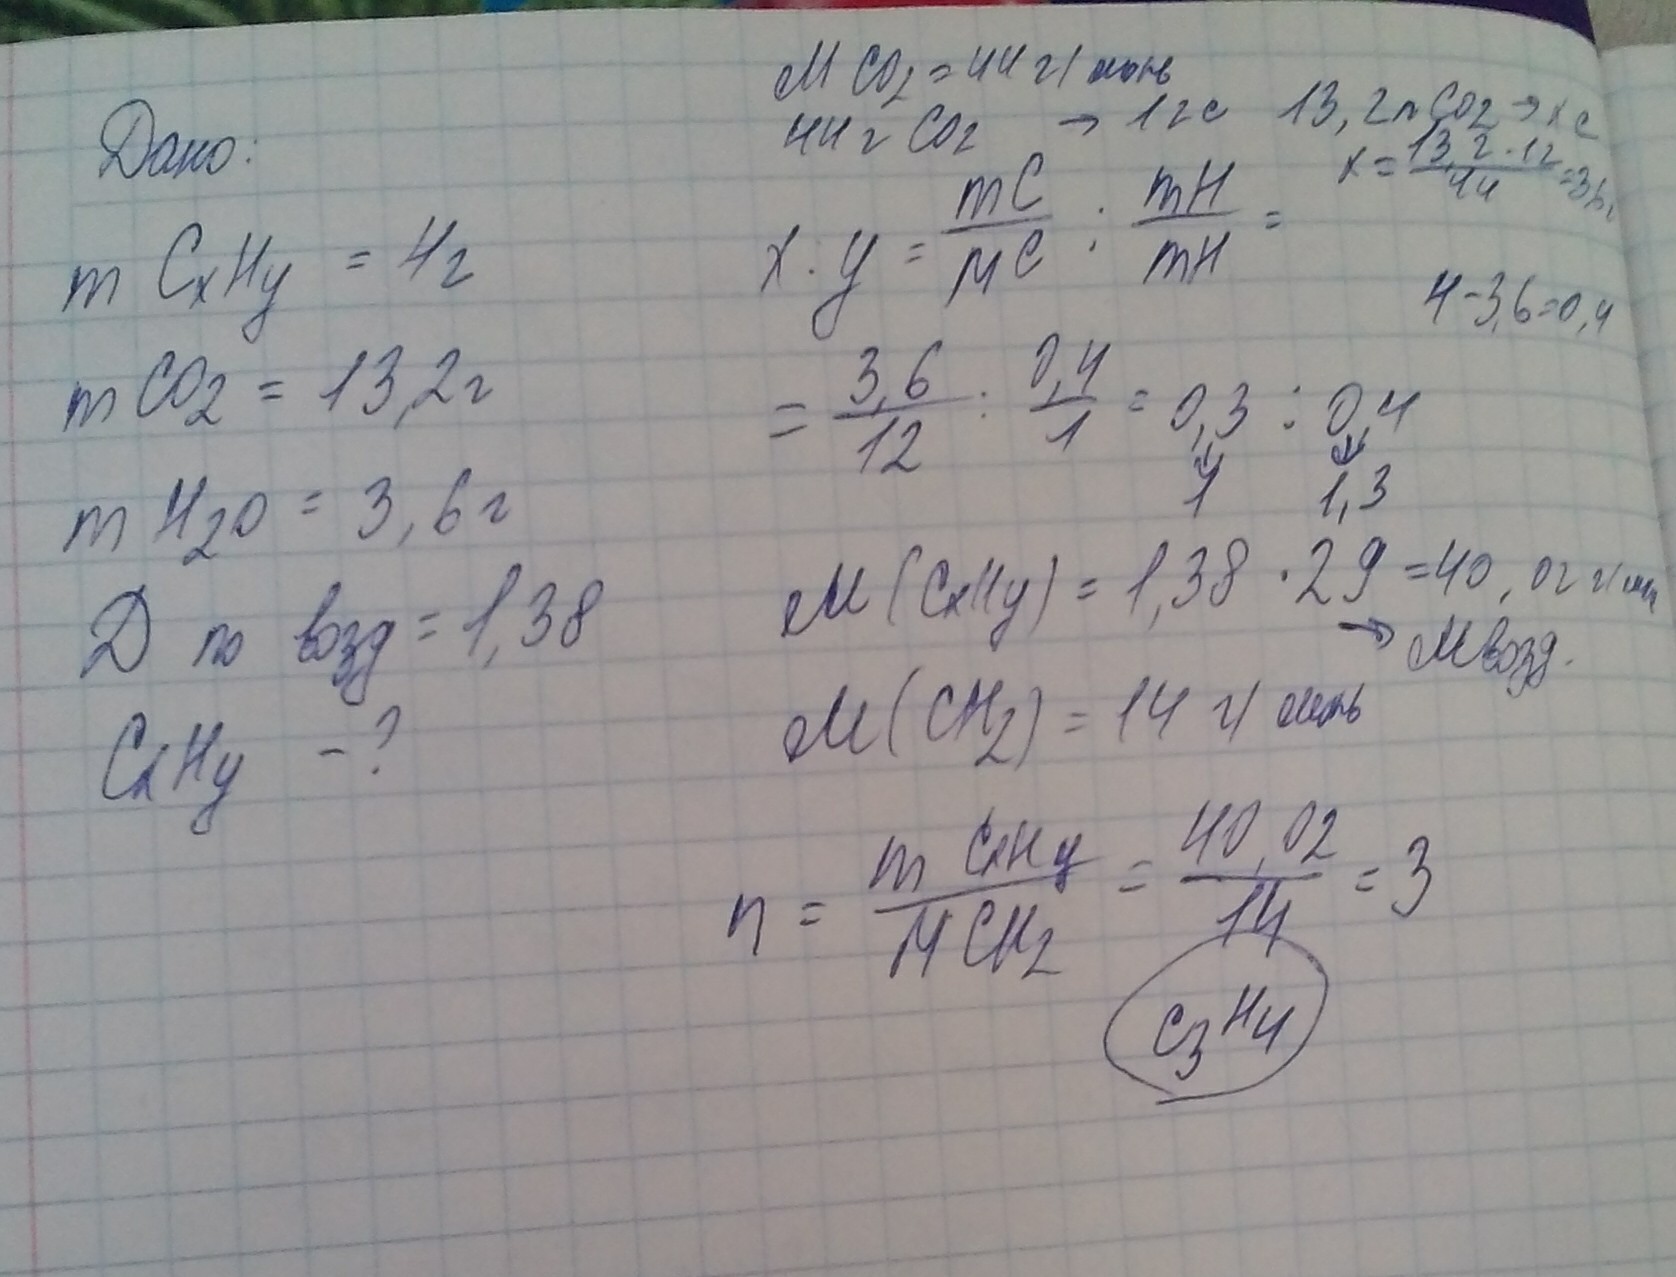 Дано:
m CxHy = 4г
m CO2 = 13,2г
m H2O = 3,6г
D по возд = 1,38
CxHy - ?
M CO2 = 44 г/моль
44г CO2 → 12г C 13,2г CO2 → x C
x = 13,2·12/44 = 3,6г
x : y = mC/MC : mH/mH =
4-3,6=0,4
= 3,6/12 : 0,4/1 = 0,3 : 0,4
1 1,3
M(CxHy) = 1,38 · 29 = 40,02 г/моль
→ M возд.
M(CH2) = 14 г/моль
n = m CxHy/M CH2 = 40,02/14 = 3
C3H4